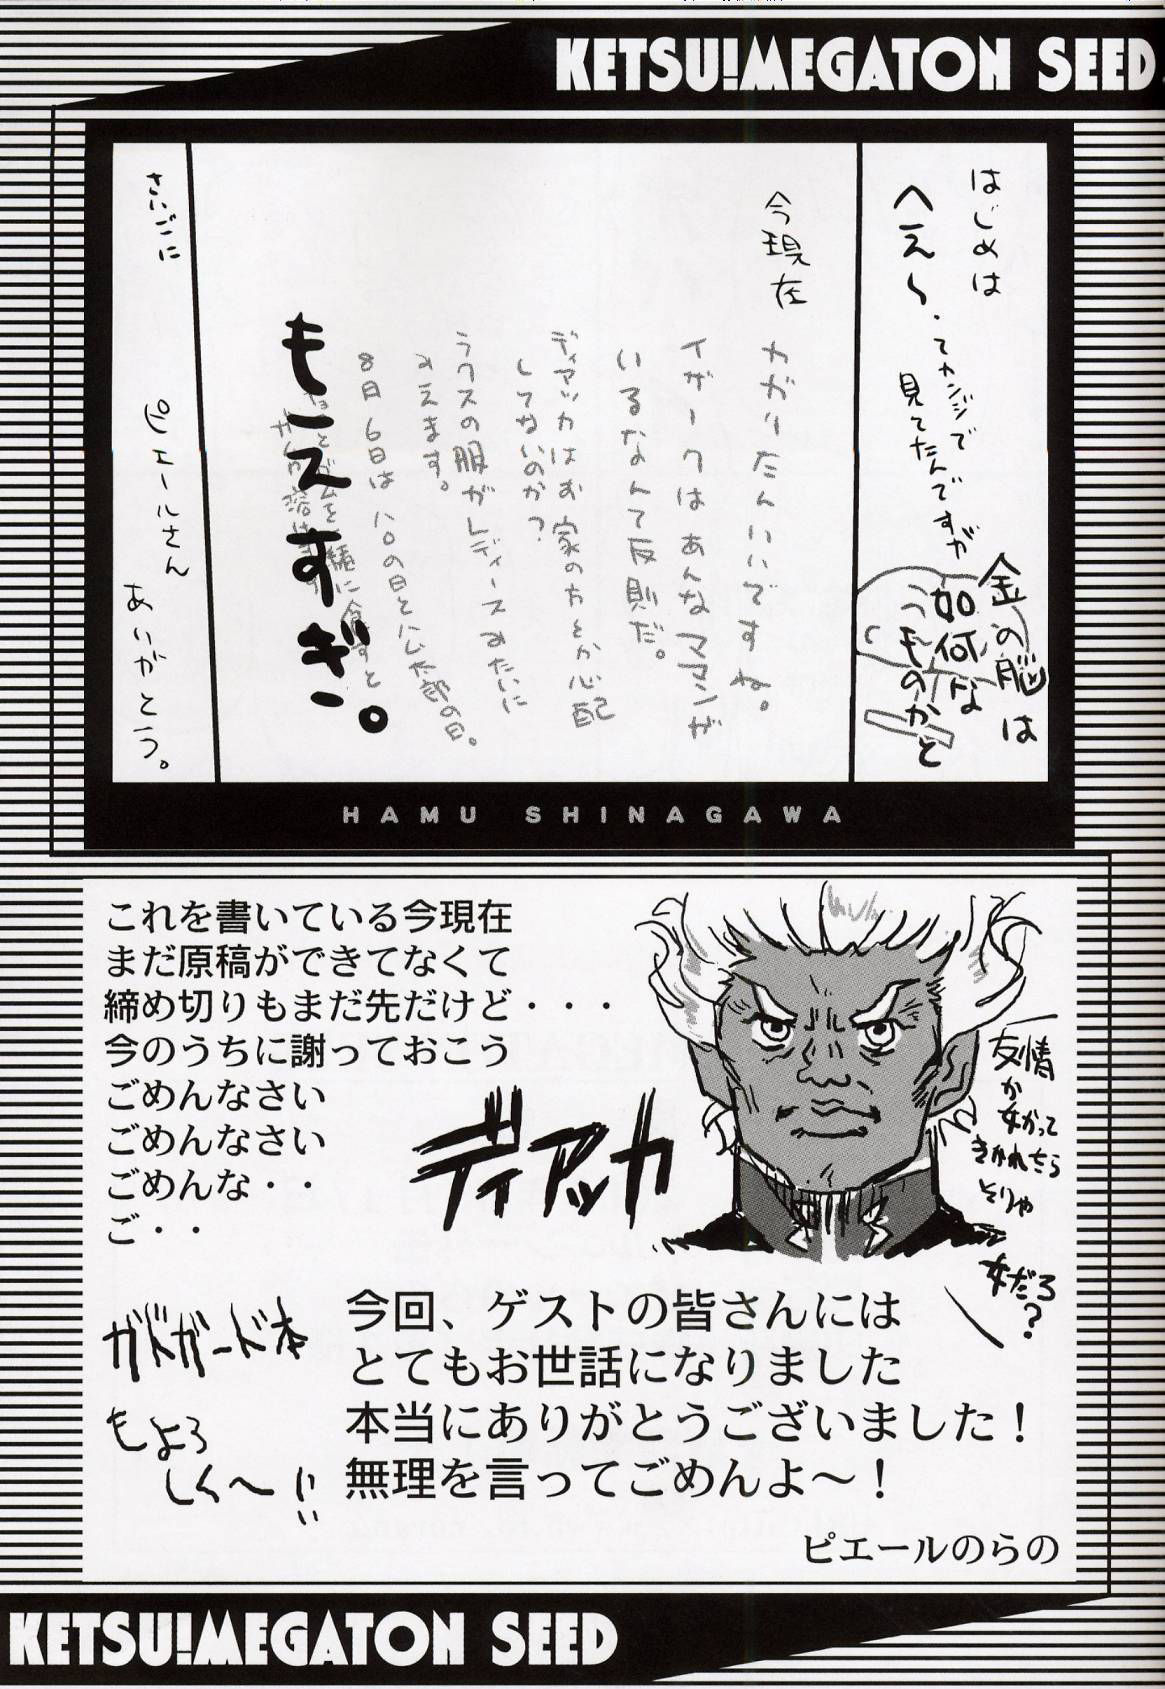 KETSU!MEGATON SEED
はじめは
へえ〜・てカンジで
見てたんですが
金の脳は
如何な
ものかと
今現在
カガリたんいいですね。
イザークはあんなママンが
いるなんて反則だ。
ディアッカはお家の方とか心配
してないのか?
ラクスの服がレディースみたいに
みえます。
8月6日はハロの日とハム太郎の日。
もーえすぎー。
さいごに
ピエールさん
ありがとう。
HAMU SHINAGAWA
これを書いている今現在
まだ原稿ができてなくて
締め切りもまだ先だけど・・・
今のうちに謝っておこう
ごめんなさい
ごめんなさい
ごめんな・・
ご・・
ディアッカ
友情
か
女かって
きかれたら
そりゃ
女だろ
?
ガドガード本
もよろ
しく〜!!
今回、ゲストの皆さんには
とてもお世話になりました
本当にありがとうございました!
無理を言ってごめんよ〜!
ピエールのらの
KETSU!MEGATON SEED